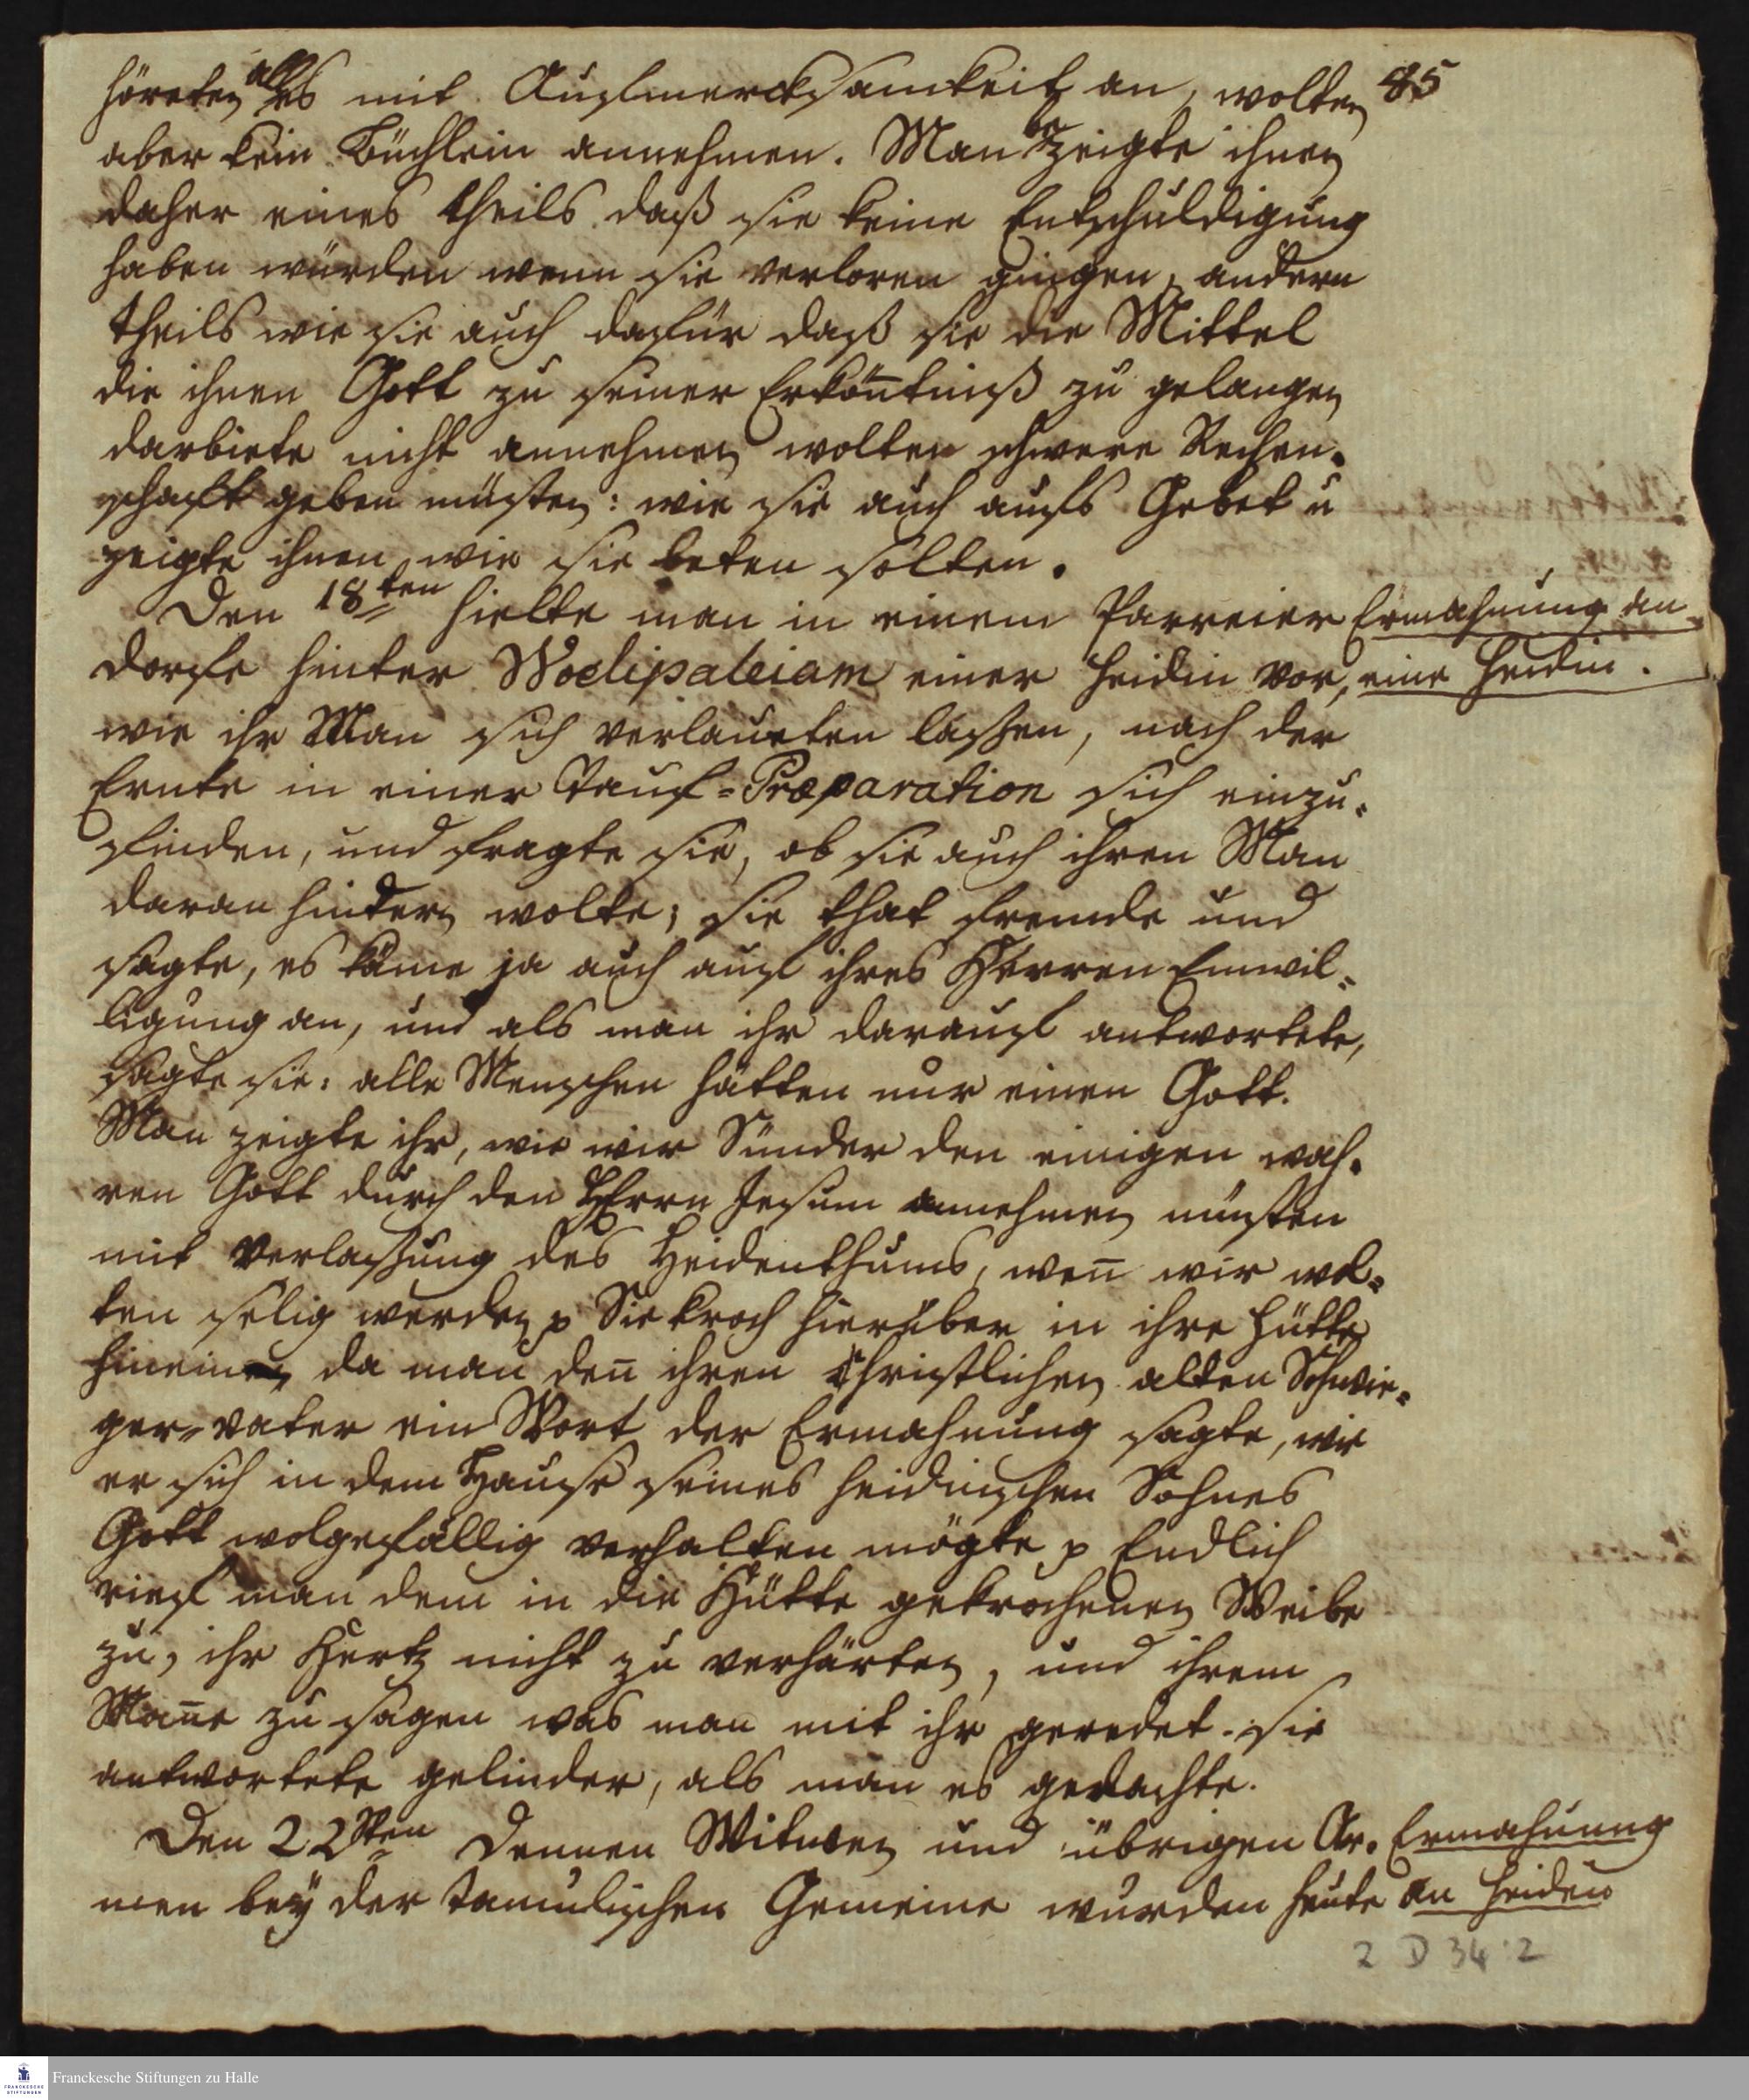 höreten alles mit Aufmercksamkeit an, wolten 85
aber kein Büchlein annehmen. Man bezeigte ihnen
daher eines theils daß sie keine Entschuldigung
haben würden wenn sie verloren gingen, andern
theils wie sie auch dafür daß sie die Mittel
die ihnen Gott zu seiner Erköñtniß zu gelangen
darbiete nicht annehmen wolten schwere Rechen-
schafft geben müsten: wie sie auch aufs Gebet u
zeigte ihnen wie sie beten solten.
Den 18ten hielte man in einem Parreier
Ermahnung an
dorfe hinter Woelipaleiam einer Heidin vor,
eine Heidin.
wie ihr Man sich verlauten laßen, nach der
Ernte in einer Tauf-Præparation sich einzu-
finden, und fragte sie, ob sie auch ihren Man
daran hindern wolte; sie that fremde und
sagte, es käme ja auch auf ihres Herren Einwil-
ligung an, und als man ihr darauf antwortete,
sagte sie: alle Menschen hätten nur einen Gott.
Man zeigte ihr, wie wir Sünder den einigen wah-
ren Gott durch den HErrn Jesum annehmen müsten
mit Verlaßung des Heidenthums, weñ wir wol-
ten selig werden p Sie kroch hierüber in ihre Hütte
hinein, da man deñ ihren Christlichen alten Schwie-
ger-vater ein Wort der Ermahnung sagte, wie
er sich in dem Hause seines heidnischen Sohnes
Gott wolgefällig verhalten mögte p Endlich
rief man dem in die Hütte gekrochenen Weibe
zu, ihr Hertz nicht zu verhärten, und ihrem
Mañe zu sagen was man mit ihr geredet. sie
antwortete gelinder, als man es gedachte.
Den 22sten Dennen Witwen und übrigen Ar-
Ermahnung
men bey der tamulischen Gemeine wurden heute
an Heiden
2 D 34:2
Franckesche Stiftungen zu Halle
FRANCKESCHE
STIFTUNGEN